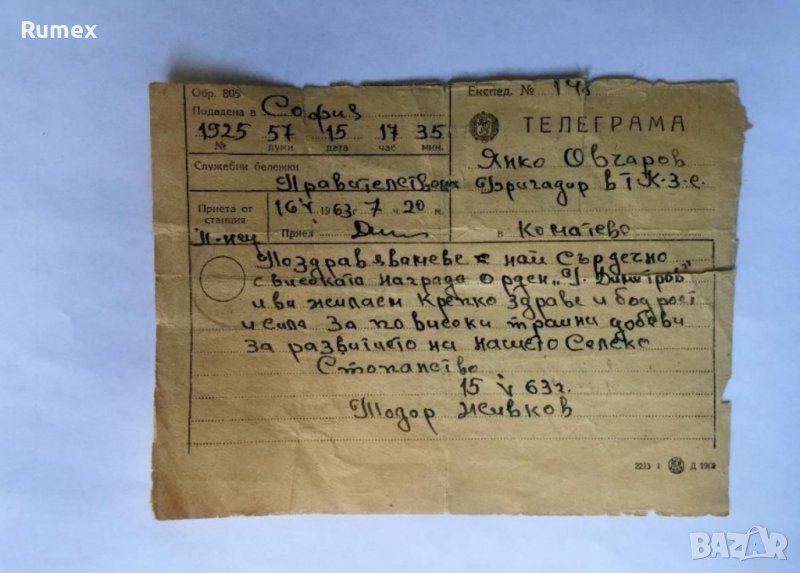 Rumex
Обр. 805
Подадена в София
Експед. № 143
1925 57 15 17 35
№ думи дата час мин.
ТЕЛЕГРАМА
Служебни бележки
Янко Овчаров
Правителствена
Бригадир в Т.К.З.С.
Приета от станция
16 V 1963 г 7 ч. 20 м.
П-нец
Приел
в Коматево
Поздравявамеве най сърдечно
с високата награда орден „Г. Димитров"
и ва жилаем крепко здраве и бодрост
и сила за по високи трайни добеви
за развитието на нашето селско
стопанство
15 V 63 г.
Тодор Живков
2213 I Д 1962
BAZAR